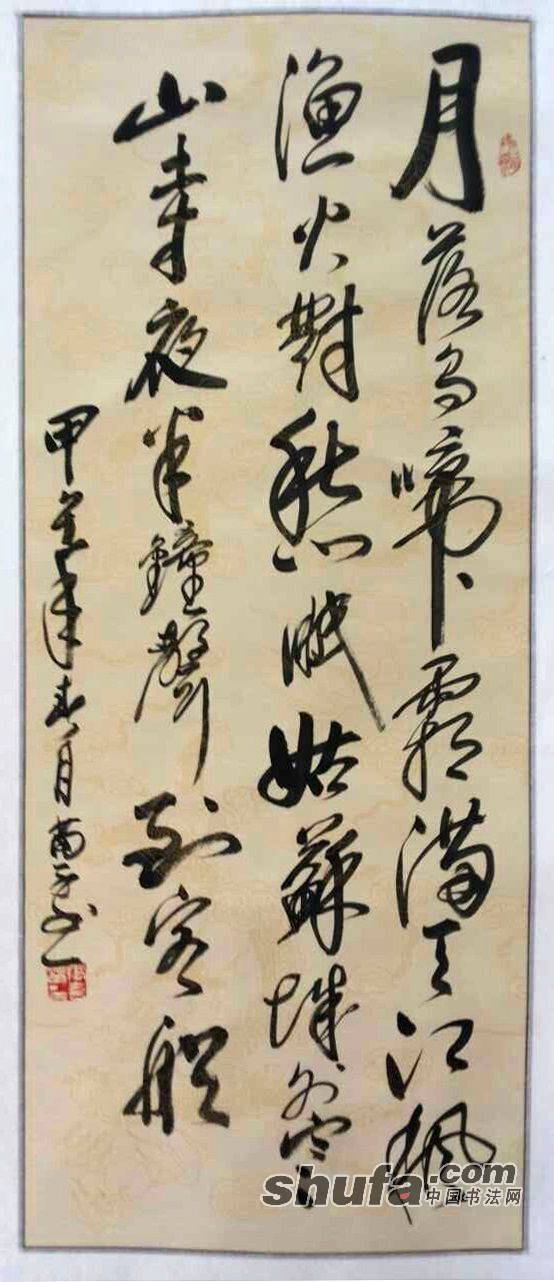 月落烏啼霜满天江楓
渔火對愁眠姑蘇城外寒
山寺夜半鐘聲到客船
甲午年春月
shufa.com
中国书法网